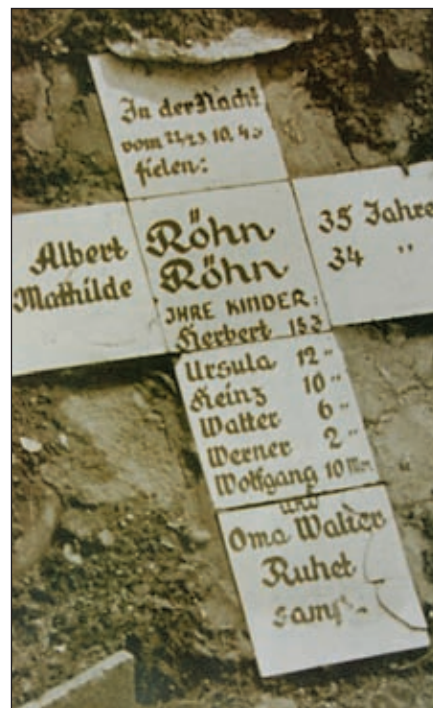 In der Nacht
vom 22/23.10.43
fielen:
Albert Röhn 35 Jahre
Mathilde Röhn 34 "
IHRE KINDER:
Herbert 15 J
Ursula 12 "
Heinz 10 "
Walter 6 "
Werner 2 "
Wolfgang 10 Mon.
und
Oma Walter
Ruhet
sanft